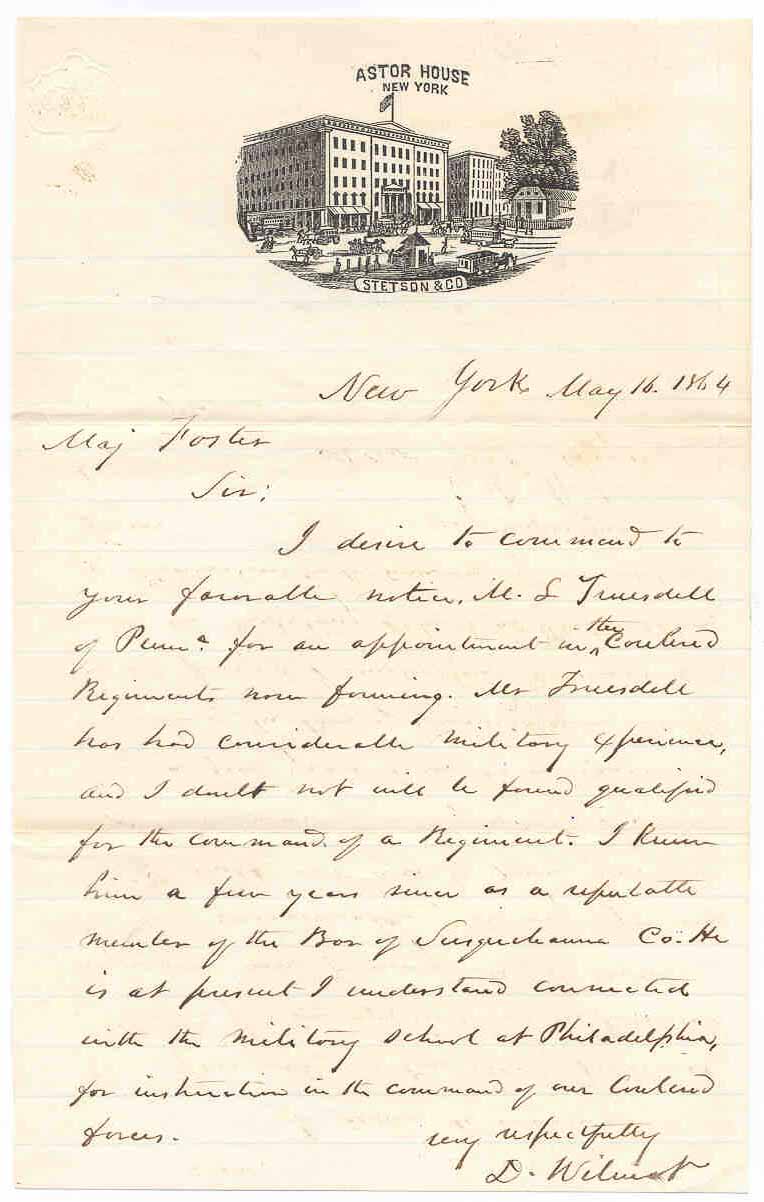 ASTOR HOUSE
NEW YORK
STETSON & CO
New York May 16. 1864
Maj Foster
Sir;
I desire to commend to
your favorable notice, M. L Truesdell
of Penna. for an appointment in the Coulered
Regiments now forming. Mr Truesdell
has had considerable military experience,
and I doubt not will be found qualified
for the command of a Regiment. I knew
him a few years since as a reputable
member of the Bar of Susquehanna Co. He
is at present I understand connected
with the military school at Philadelphia,
for instruction in the command of our Coulered
forces.
very respectfully
D. Wilmot